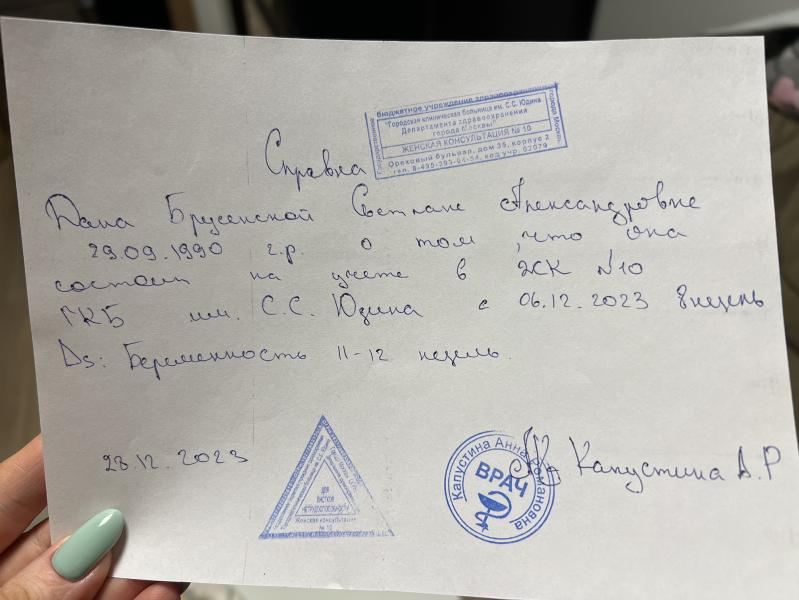 бюджетное учреждение здравоохранения
Государственное
"Городская клиническая больница им. С.С. Юдина
Департамента здравоохранения
города Москвы"
города Москвы
ЖЕНСКАЯ КОНСУЛЬТАЦИЯ № 10
Ореховый бульвар, дом 35, корпус 2
тел. 8-495-395-04-54, код учр. 07079
Справка
Дана Брусенской Светлане Александровне
29.09.1990 г.р. о том, что она
состоит на учете в ЖК №10
ГКБ им. С.С. Юдина с 06.12.2023 8 недель
Ds: Беременность 11-12 недель.
28.12.2023
ДЛЯ
ЛИСТКОВ
НЕТРУДОСПОСОБНОСТИ
Женская консультация
№ 10
Капустина Анна Романовна
ВРАЧ
Капустина А.Р